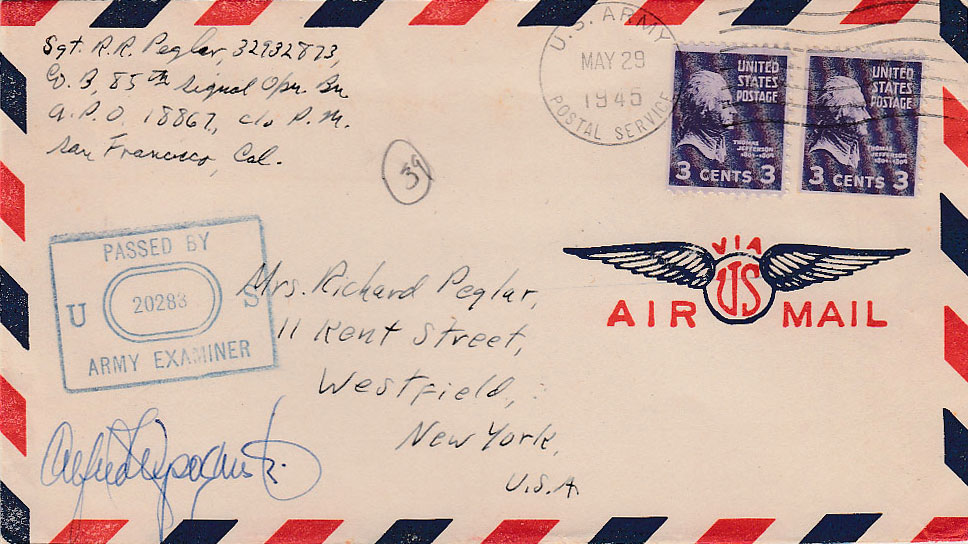 Sgt. R.R. Peglar, 32932873,
Co. B, 85th Signal Opn. Bn
A.P.O. 18867, c/o P.M.
San Francisco, Cal.
39
U.S. ARMY
MAY 29
1945
POSTAL SERVICE
UNITED
STATES
POSTAGE
THOMAS
JEFFERSON
1801-1809
3 CENTS 3
UNITED
STATES
POSTAGE
THOMAS
JEFFERSON
1801-1809
3 CENTS 3
PASSED BY
U 20283 S
ARMY EXAMINER
VIA
US
AIR MAIL
Mrs. Richard Peglar,
11 Kent Street,
Westfield,
New York,
U.S.A.